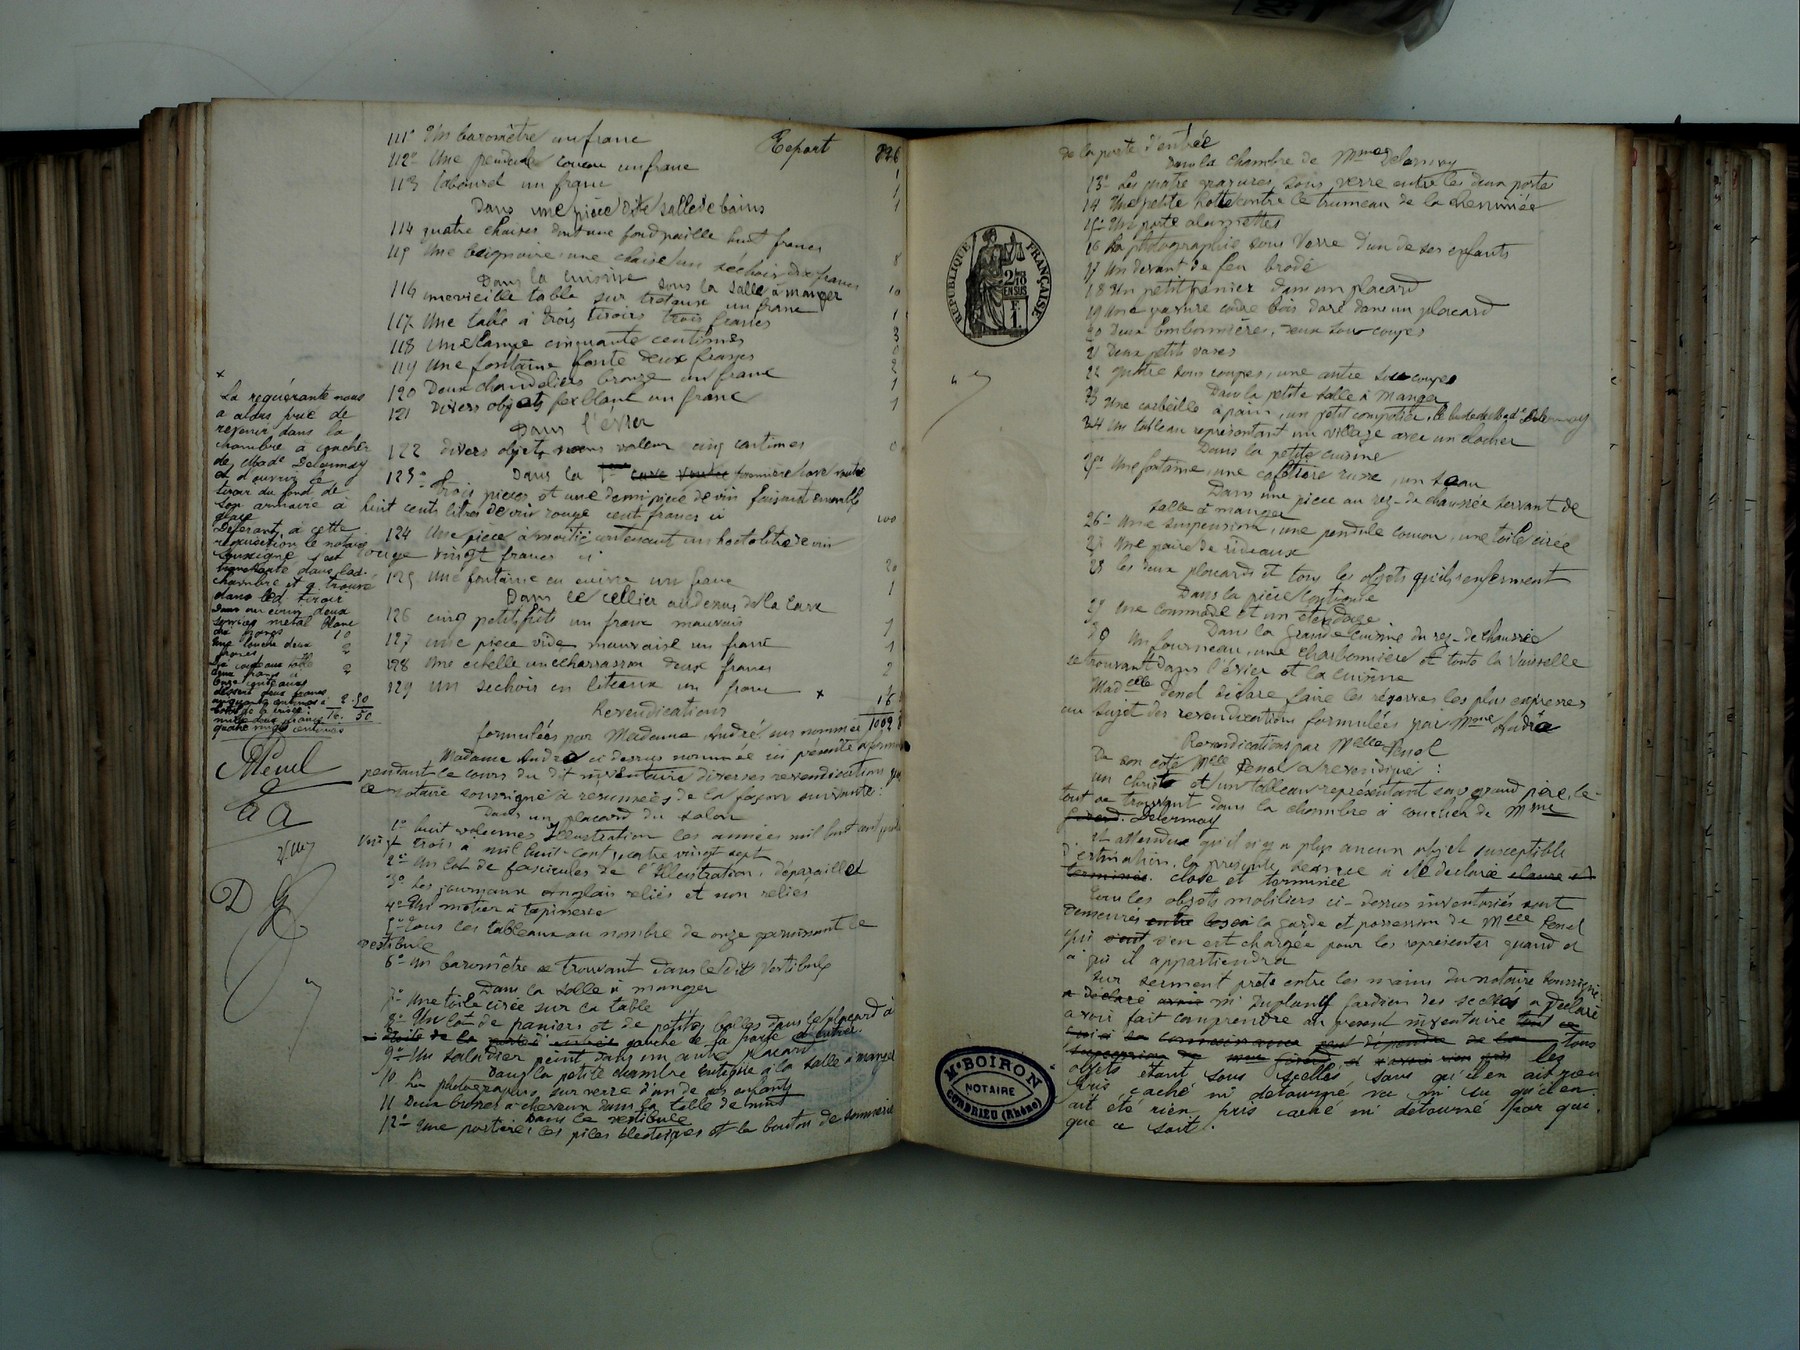 Report 896
111° Un baromètre un franc 1
112° Une pendule coucou un franc 1
113 labourel un franc 1
Dans une pièce dite salle de bains
114 quatre chaises dont une fond paille huit francs 8
115 Une baignoire, une chaise, un séchoir dix francs 10
Dans la cuisine sous la salle à manger
116 une vieille table sur tréteaux un franc 1
117 Une table à trois tiroirs trois francs 3
118 Une lampe cinquante centimes 0
119 Une fontaine fonte deux francs 2
120 Deux chandeliers bronze un franc 1
121 Divers objets ferblanc un franc 1
Dans l'évier
122 divers objets sans valeur cinq centimes 0
Dans la 1ere cave voutée première cave voutée
123° trois pièces et une demi pièce de vin faisant ensemble
huit cents litres de vin rouge cent francs ci 100
124 Une pièce à moitié contenant un hectolitre de vin
rouge vingt francs ci 20
125 Une fontaine en cuivre un franc 1
Dans le cellier au dessus de la cave
126 cinq petits fûts un franc mauvais 1
127 une pièce vide mauvaise un franc 1
128 Une echelle un echarasson deux francs 2
129 un sechoir en liteaux un franc x 1
16
1092
Revendications
formulées par Madame André sus nommée
Madame André ci dessus nommée ici présente a formé
pendant le cours du dit inventaire diverses revendications que
le notaire soussigné a resumées de la façon suivante:
Dans un placard du salon
1° huit volumes Illustration les années mil huit cent quatre
vingt trois à mil huit-cent quatre vingt sept
2° Un lot de fascicules de l'Illustration, dépareillés
3° Les journaux Anglais reliés et non reliés
4° Un métier à tapisserie
5° tous les tableaux au nombre de onze garnissant le
vestibule
6° Un baromètre se trouvant dans le dit vestibule
Dans la salle à manger
7° Une toile cirée sur la table
8° Un lot de paniers et de petites boîtes dans le placard à
droite de la gauche de la porte d'entrée
9° Un saladier peint dans un autre placard
Dans la petite chambre contigue à la salle à manger
10 La photographie sur verre d'un de ses enfants
11 Deux brosses à cheveux dans la table de nuit
Dans le vestibule
12° Une portière, les piles électriques et le bouton de sonnerie
x
La requérante nous
a alors prié de
revenir dans la
chambre à coucher
de Made Delormay
et d'ouvrir le
tiroir du fond de
son armoire à
glace
Déférant à cette
requisition le notaire
soussigné s'est
transporté dans lad.
chambre et a trouvé
dans led. tiroir
Dans un écrin deux
services métal blanc
dix francs 10
Une louche deux
francs 2
Six couteaux table
deux francs 2
Onze couteaux
dessert deux francs
cinquante centimes 2.50
16. 50
quatre vingts centimes
de la porte d'entrée
Dans la chambre de Mme Delormay
13° Les quatre gravures sous verre entre les deux portes
14 Une petite hotte contre le trumeau de la cheminée
15° Un porte alumettes
16 La photographie sous Verre d'un de ses enfants
17 Un devant de feu brodé
18 Un petit panier dans un placard
19 Une gravure cadre bois doré dans un placard
20 Deux bonbonnières, deux sous coupes
21 Deux petits vases
22 quatre sous coupes, une autre sou coupe
Dans la petite salle à manger
23 Une corbeille à pain, un petit compotier, le buste de Made Delormay
24 Un tableau représentant un village avec un clocher
Dans la petite cuisine
25° Une fontaine, une cafetière russe, un seau
Dans une pièce au rez-de chaussée servant de
salle à manger
26° Une suspension, une pendule coucou, une toile cirée
27 Une paire de rideaux
28 les deux placards et tous les objets qu'ils renferment
Dans la pièce contigue
29 Une commode et un étendage
Dans la grande cuisine du rez-de-chaussée
30 Un fourneau, une charbonnière et toute la Vaisselle
se trouvant dans l'évier et la cuisine
Madelle Penel déclare faire les réserves les plus expresses
au Sujet des revendications formulées par Mme André
Revendications par Melle Penel
De son côté Melle Penel a revendiqué:
un christ et un tableau représentant son grand père, le
tout se trouvant dans la chambre à coucher de Mme
Delormay
Et attendu qu'il n'y a plus aucun objet susceptible
d'estimation, la presente séance a été déclarée
terminée. close et terminée
Tous les objets mobiliers ci-dessus inventoriés sont
demeurés entre les en la garde et possession de Melle Penel
qui s'en est chargée pour les représenter quand et
à qui il appartiendra
Sur serment prêté entre les mains du notaire soussigné
a déclaré avoir Mr Duplany gardien des scellés a declaré
avoir fait comprendre au present inventaire tous
tous les
objets étant sous scellés sans qu'il en ait rien
pris caché ni detourné vu ni su qu'il en
ait été rien pris caché ni detourné par qui
que ce soit.
RÉPUBLIQUE FRANÇAISE
2/10
EN SUS
F
1
Me BOIRON
NOTAIRE
CONDRIEU (Rhône)